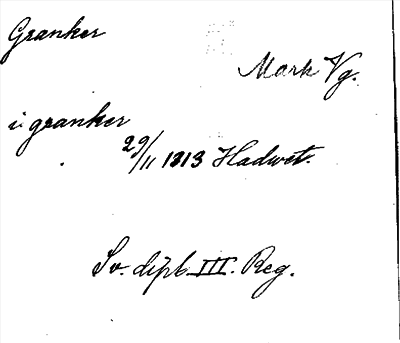 Granker
Mark Vg.
i granker
29/11 1313 Hadwet.
Sv. dipl. III. Reg.